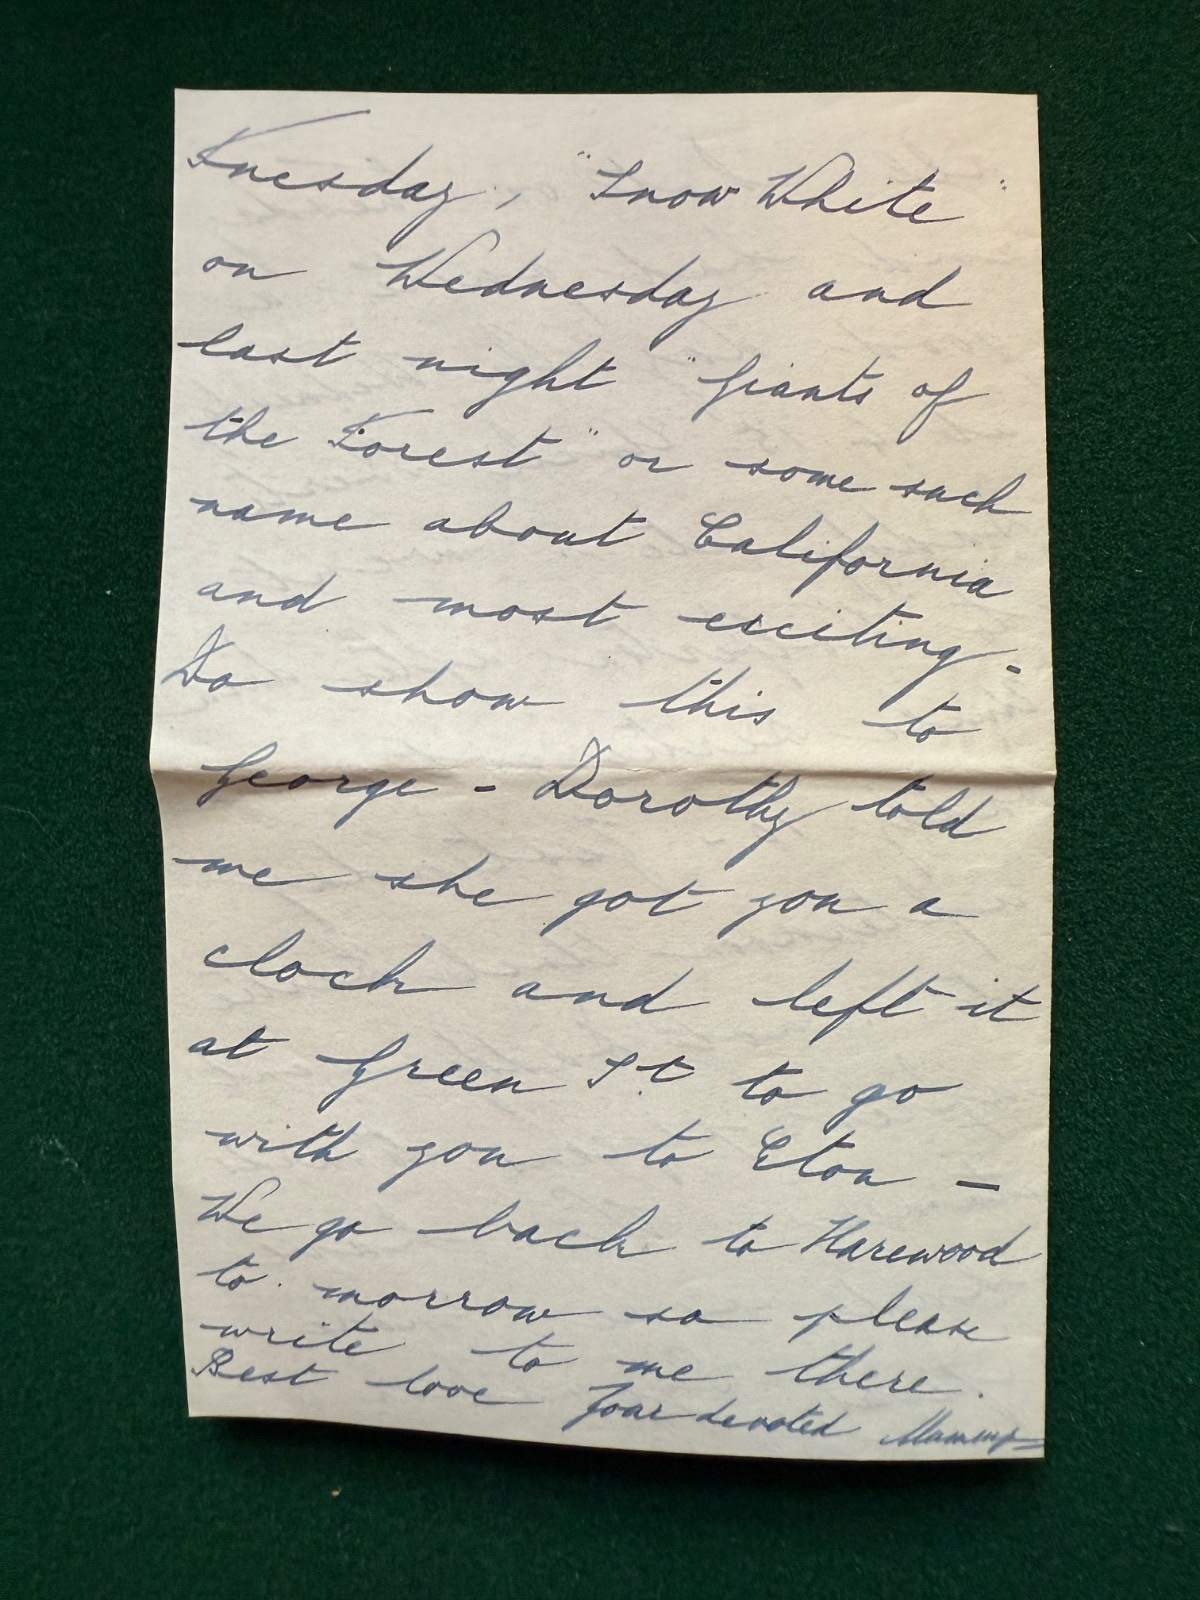 Tuesday, "Snow White"
on Wednesday and
last night "Giants of
the Forest" or some such
name about California
and most exciting -
Do show this to
George - Dorothy told
me she got you a
clock and left it
at Green St. to go
with you to Eton -
We go back to Harewood
to morrow so please
write to me there.
Best love Your devoted